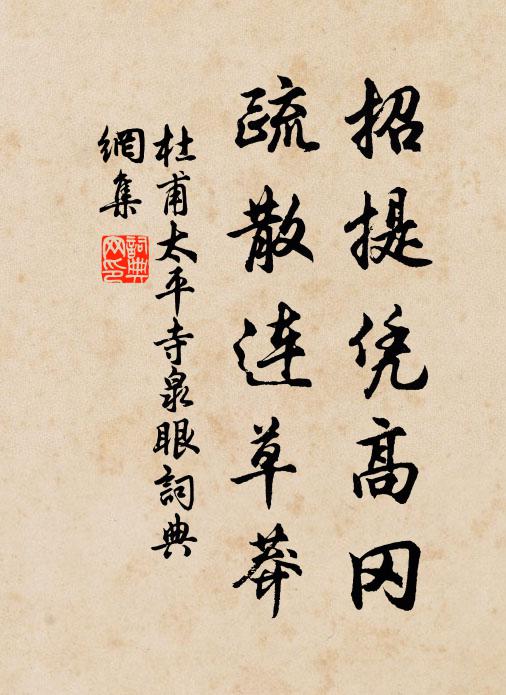 招提凭高冈
疏散连草莽
杜甫太平寺泉眼词典
網集
詞典网印